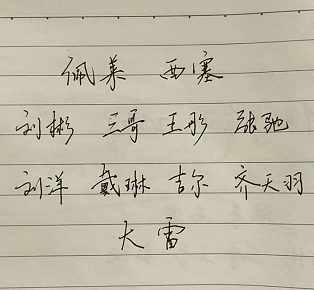 佩莱 西塞
刘彬 三哥 王彤 张驰
刘洋 戴琳 吉尔 齐天羽
大雷